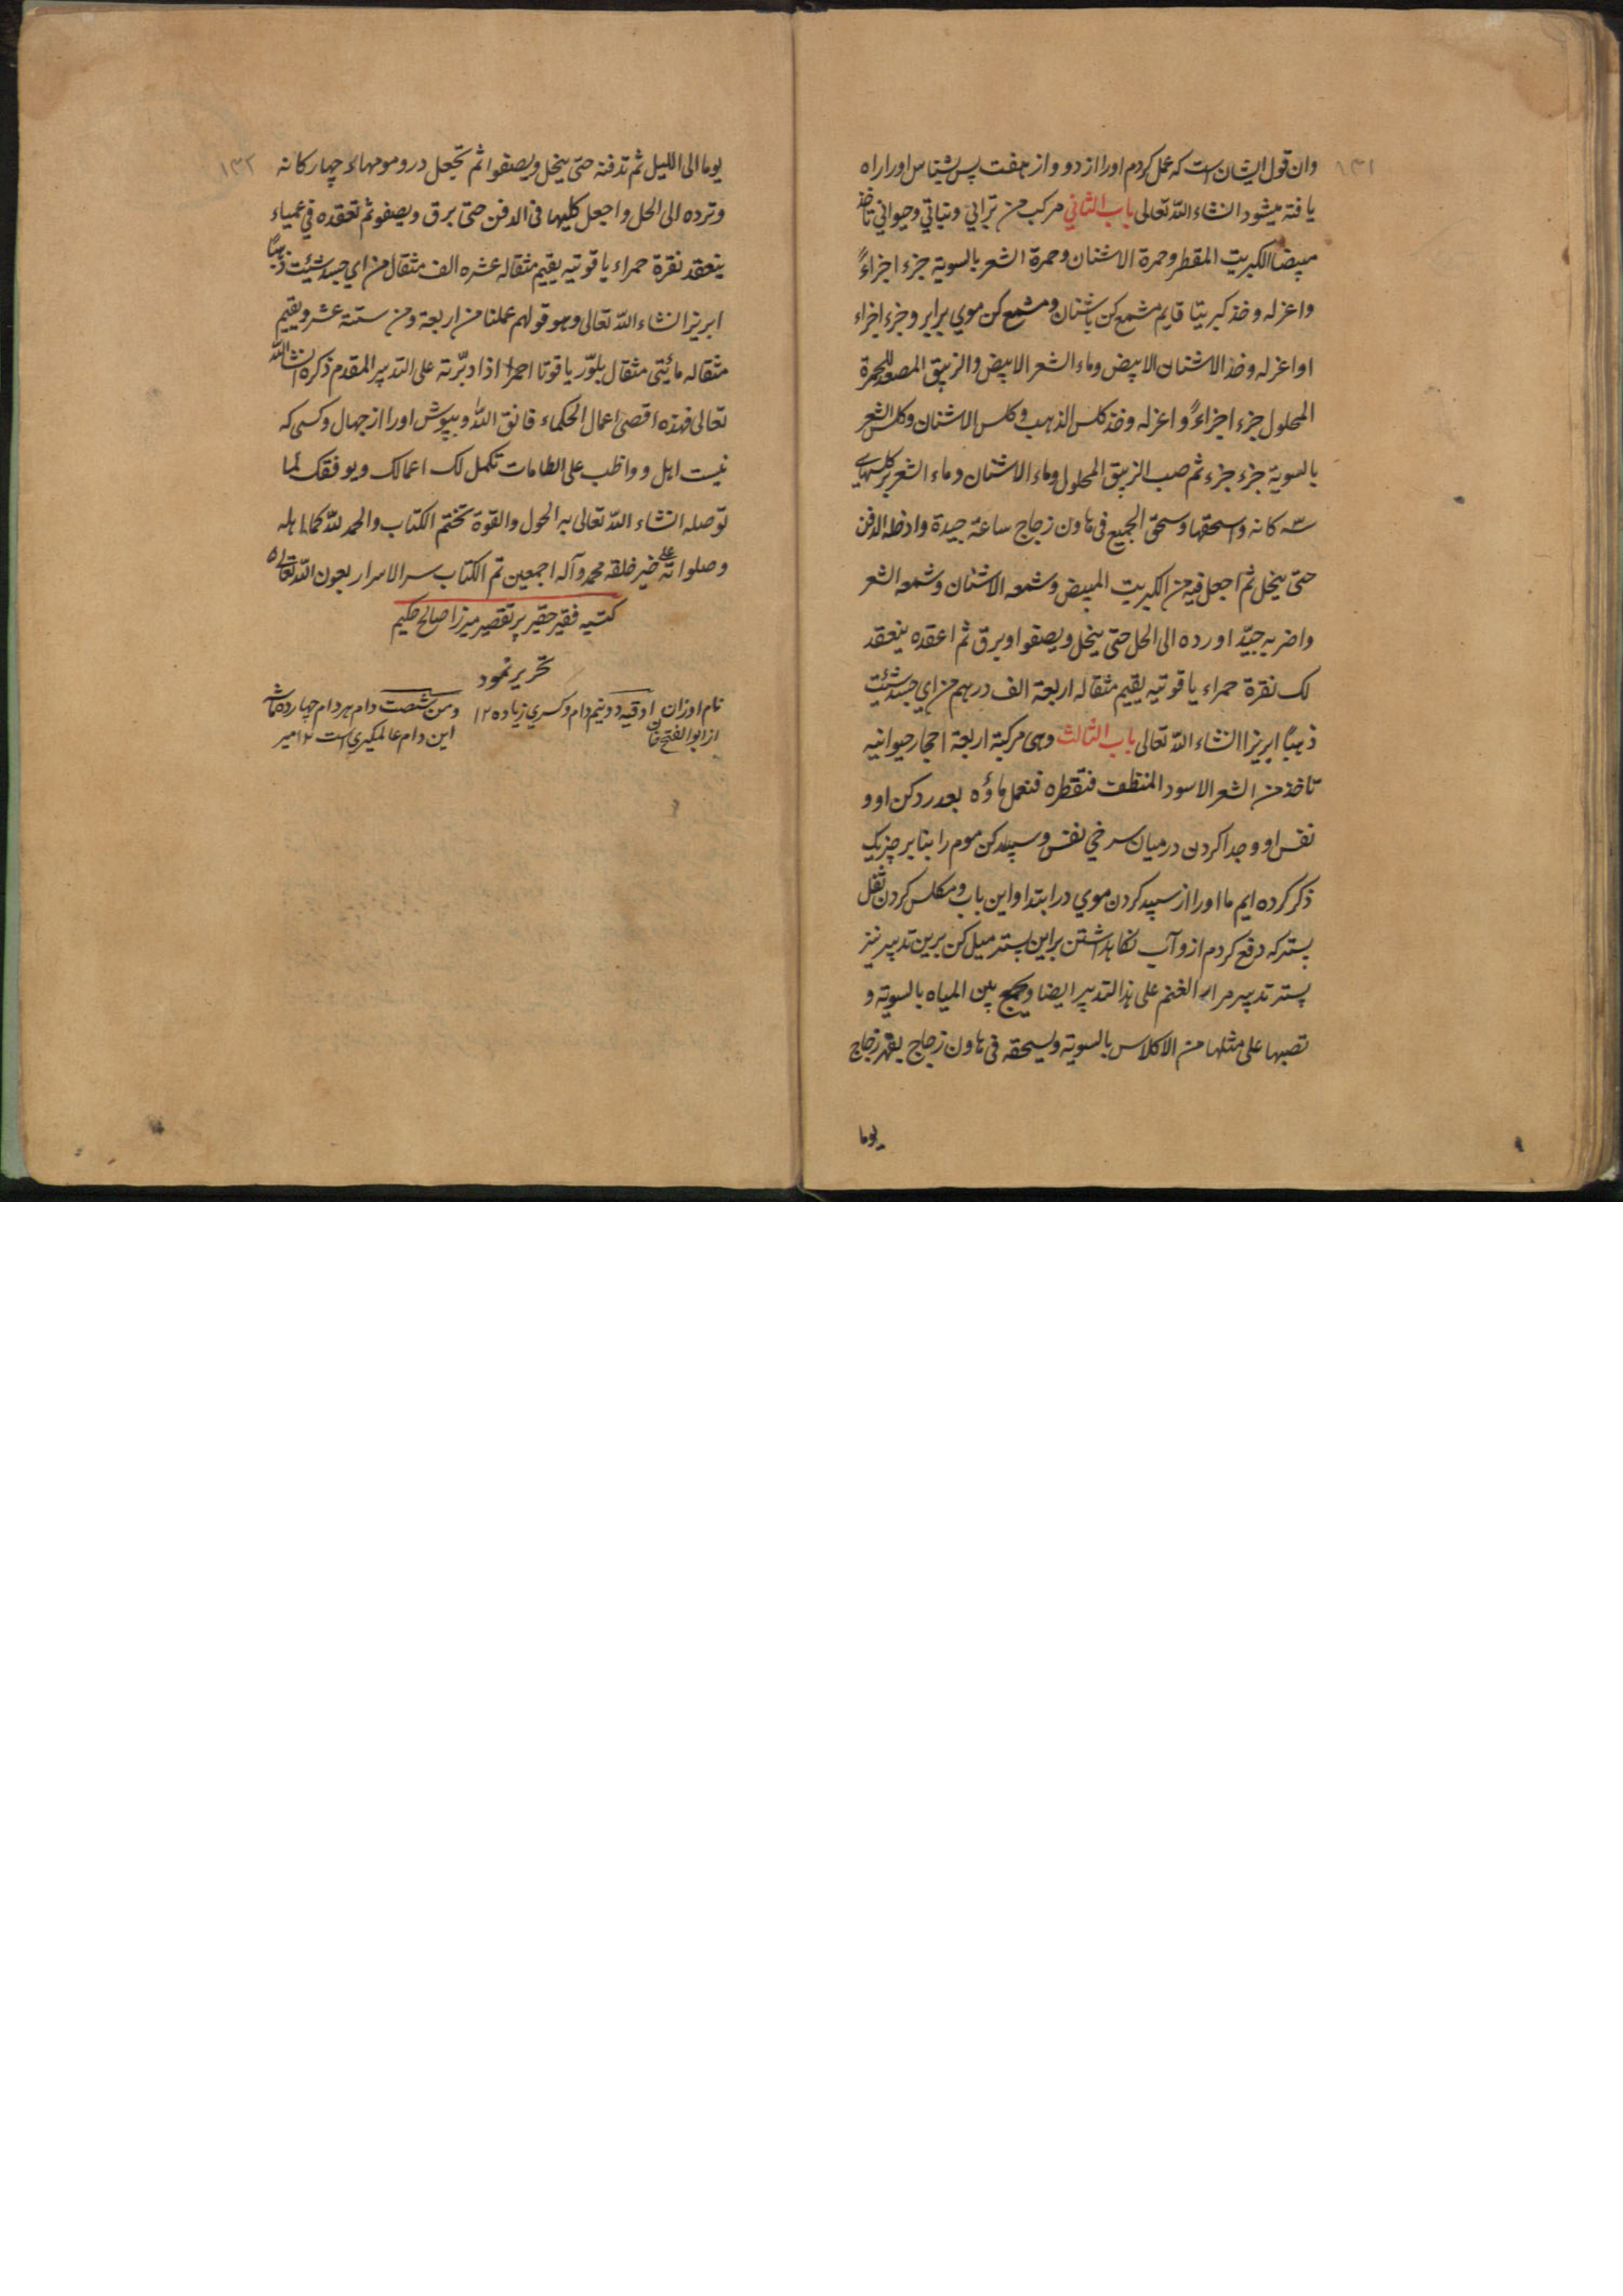 ١٣١
وان قول ایشان است که عمل کردم اورا از دو و از هفت پس بشناس اورا راه
یافته میشود انشاء الله تعالی باب الثانی مرکب من ترابي ونباتي وحيواني تاخذ
مبيضا الكبريت المقطر وحمرة الاشنان وحمرة الشعر بالسوية جزء اجزاءً
واعزله وخذ كبريتا قايم مشمع كن باشنان ومشمع كن موي برابر وجزء اجزاء
اواعزله وخذ الاشنان الابيض وماء الشعر الابيض والزيبق المصعد للحمرة
المحلول جزء اجزاءً واعزله وخذ كلس الذهب وكلس الاشنان وكلس الشعر
بالسوية جزء جزء ثم صب الزيبق المحلول وماء الاشنان وماء الشعر بر كلسهاي
سه كانه واسحقها وسحق الجميع فى هاون زجاج ساعة جيدة وادخله الدفن
حتى ينحل ثم اجعل فيه من الكبريت المبيض وشمعه الاشنان وشمعه الشعر
واضربه جيّدا ورده الى الحل حتى ينحل ويصفوا ويرق ثم اعقده ينعقد
لك نقرة حمراء ياقوتيه يقيم مثقاله اربعة الف درهم من اي جسد شئت
ذهبًا ابريزا انشاء الله تعالى باب الثالث وهى مركبة اربعة احجار حيوانيه
تاخذ من الشعر الاسود المنظف فتقطره فنعمل ماؤه بعد رد كن او و
نفس او وجدا كردن درميان سرخي نفس وسپيد كن موم را بنابر چيزيكه
ذكر كرده ايم ما اورا از سپيد كردن موي در ابتداء اين باب ومكلس كردن ثفل
پستر كه دفع كردم ازو آب نكاهداشتن براين پستر ميل كن برين تدبير نيز
پستر تدبير مرار الغنم على هذا التدبير ايضا ويجمع بين المياه بالسوية و
تصبها على مثلها من الاكلاس بالسوية ويسحقه فى هاون زجاج بفهر زجاج
يوما
١٣٢
يوما الى الليل ثم تدفنه حتى ينحل ويصفوا ثم تجعل درو مومهاء چهار كانه
وترده الى الحل واجعل كليهما فى الدفن حتى يرق ويصفو ثم تعقده في عمياء
ينعقد نقرة حمراء ياقوتيه يقيم مثقاله عشره الف مثقال من اي جسد شئت ذهبًا
ابريزا انشاء الله تعالى وهو قولهم عملنا من اربعة ومن ستة عشر ويقيم
مثقاله مائتى مثقال بلّور ياقوتا احمرا اذا دبّرته على التدبير المقدم ذكره انشاالله
تعالى فهذه اقصى اعمال الحكماء فاتق الله وبپوش اورا از جهال وكسى كه
نيست اهل وواظب على الطاعات تكمل لك اعمالك ويوفقك لما
توصله انشاء الله تعالى به الحول والقوة تختم الكتاب والحمد لله كما اهله
وصلواته على خير خلقه محمد وآله اجمعين تم الكتاب سر الاسرار بعون الله تعالى
كتبه فقير حقير پر تقصير ميرزا صالح حكيم
تحرير نمود
نام اوزان اوقيه دونيم دام وكسري زياده ١٢
از ابوالفتح خان
ومن شصت دام هر دام چهارده ماشه
اين دام عالمكيري است ١٢ مير